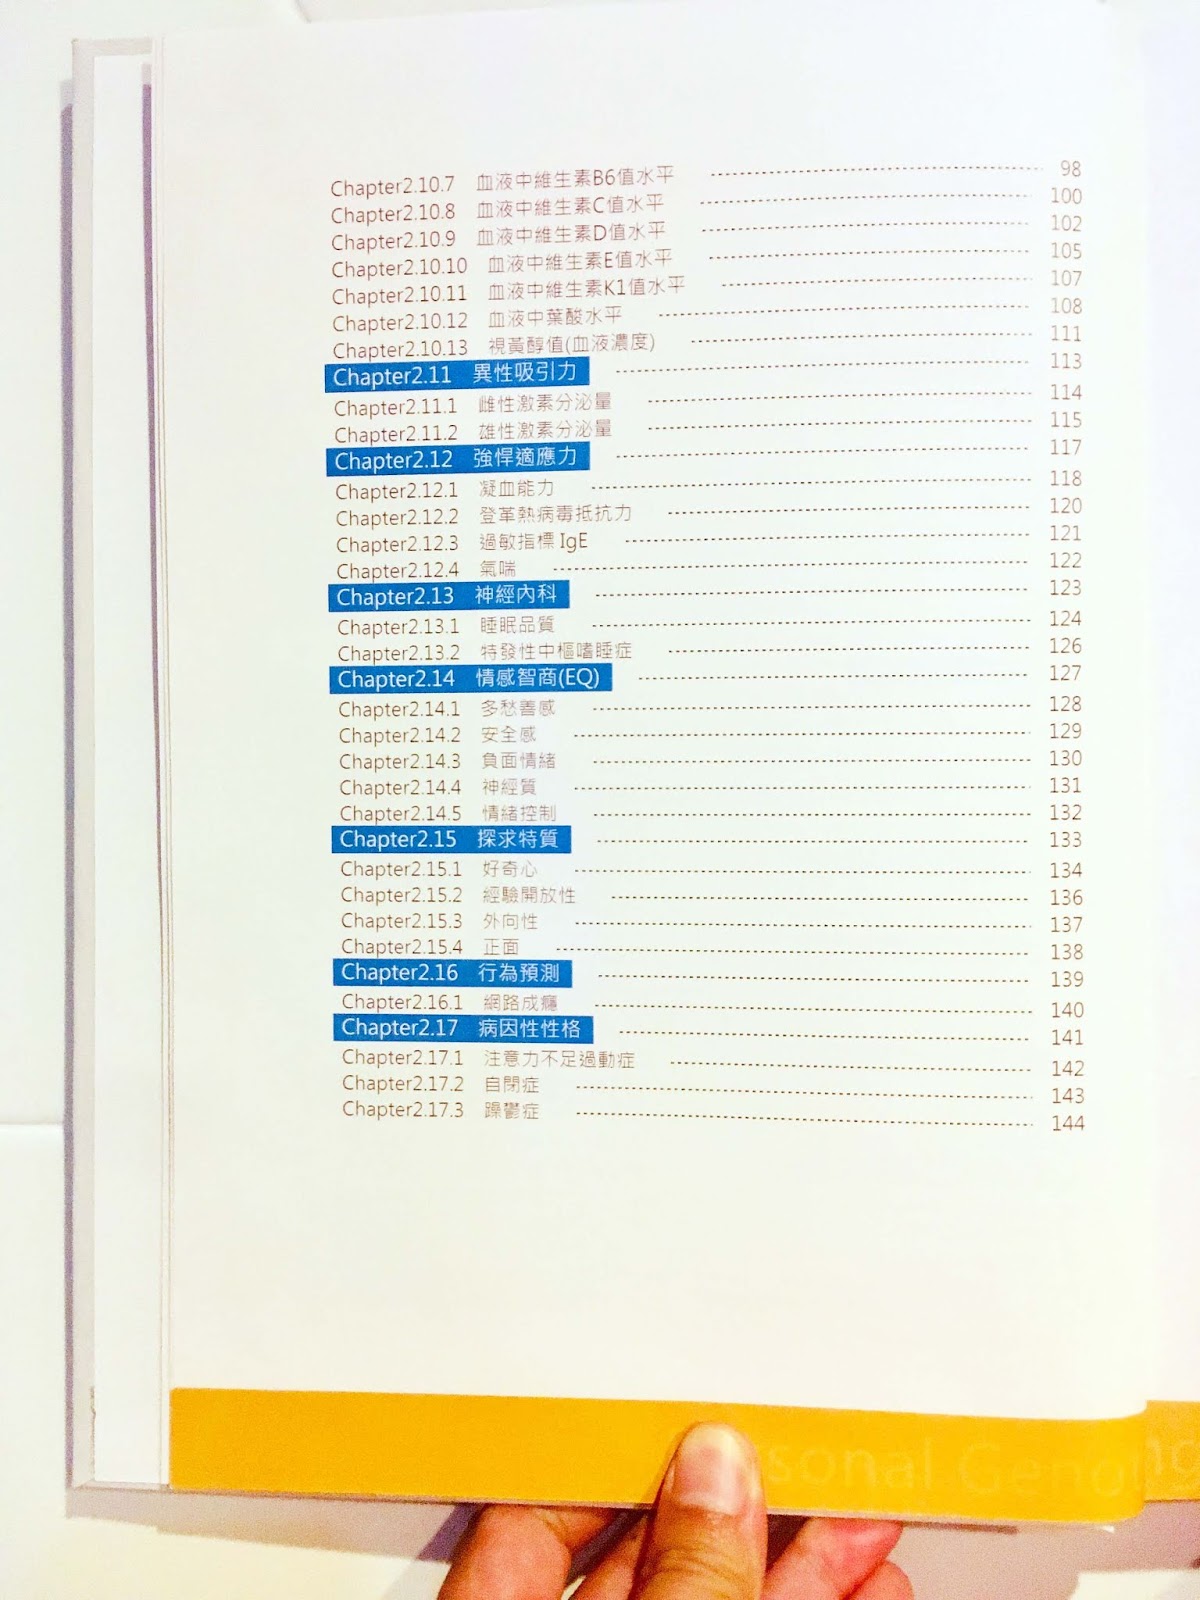 Chapter2.10.7 血液中維生素B6值水平 98
Chapter2.10.8 血液中維生素C值水平 100
Chapter2.10.9 血液中維生素D值水平 102
Chapter2.10.10 血液中維生素E值水平 105
Chapter2.10.11 血液中維生素K1值水平 107
Chapter2.10.12 血液中葉酸水平 108
Chapter2.10.13 視黃醇值(血液濃度) 111
Chapter2.11 異性吸引力 113
Chapter2.11.1 雌性激素分泌量 114
Chapter2.11.2 雄性激素分泌量 115
Chapter2.12 強悍適應力 117
Chapter2.12.1 凝血能力 118
Chapter2.12.2 登革熱病毒抵抗力 120
Chapter2.12.3 過敏指標 IgE 121
Chapter2.12.4 氣喘 122
Chapter2.13 神經內科 123
Chapter2.13.1 睡眠品質 124
Chapter2.13.2 特發性中樞嗜睡症 126
Chapter2.14 情感智商(EQ) 127
Chapter2.14.1 多愁善感 128
Chapter2.14.2 安全感 129
Chapter2.14.3 負面情緒 130
Chapter2.14.4 神經質 131
Chapter2.14.5 情緒控制 132
Chapter2.15 探求特質 133
Chapter2.15.1 好奇心 134
Chapter2.15.2 經驗開放性 136
Chapter2.15.3 外向性 137
Chapter2.15.4 正面 138
Chapter2.16 行為預測 139
Chapter2.16.1 網路成癮 140
Chapter2.17 病因性性格 141
Chapter2.17.1 注意力不足過動症 142
Chapter2.17.2 自閉症 143
Chapter2.17.3 躁鬱症 144